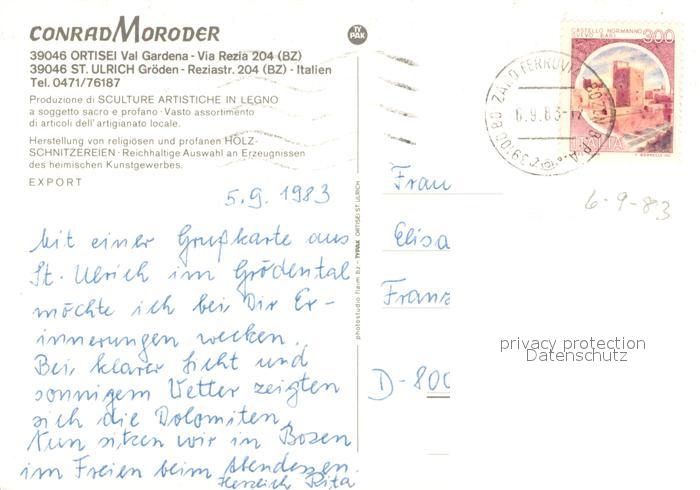 CONRAD MORODER
39046 ORTISEI Val Gardena - Via Rezia 204 (BZ)
39046 ST. ULRICH Gröden - Reziastr. 204 (BZ) - Italien
Tel. 0471/76187
Produzione di SCULTURE ARTISTICHE IN LEGNO
a soggetto sacro e profano · Vasto assortimento
di articoli dell'artigianato locale.
Herstellung von religiösen und profanen HOLZ-
SCHNITZEREIEN · Reichhaltige Auswahl an Erzeugnissen
des heimischen Kunstgewerbes.
EXPORT
5.9.1983
Mit einer Grußkarte aus
St. Ulrich im Grödental
möchte ich bei Dir Er-
innerungen wecken.
Bei klarer Sicht und
sonnigem Wetter zeigten
sich die Dolomiten.
Nun sitzen wir in Bozen
im Freien beim Abendessen.
Herzlich Rita
TYPAK
photostudio fleim bz - TYPAK ORTISEI ST. ULRICH
CASTELLO NORMANNO
SVEVO BARI
300
ITALIA
6.9.83-17
6-9-83
Frau
Elisa
Franz
D-800
privacy protection
Datenschutz